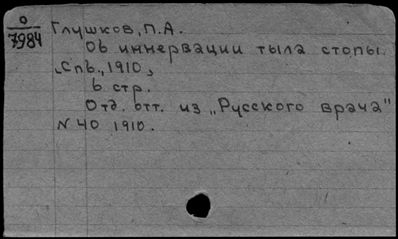 О
7984
Глушков, П.А.
Объ иннервации тыла стопы.
Спъ., 1910,
6 стр.
Отд. отт. из „Русского врача"
N 40 1910.